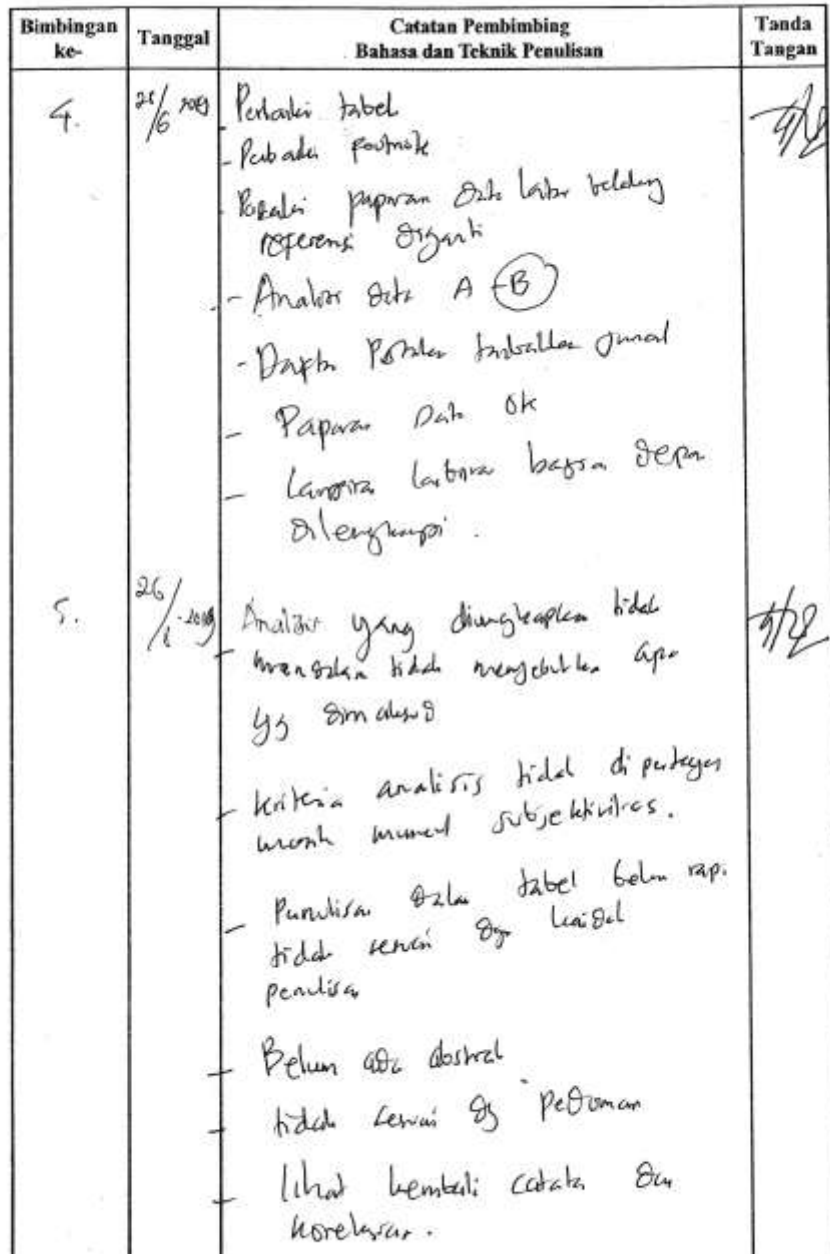 Bimbingan ke-
Tanggal
Catatan Pembimbing
Bahasa dan Teknik Penulisan
Tanda Tangan
4.
- tabel
- footnote
- paparan data latar belakang
referensi diganti
- Analisis data A - B
- Daftar tambahkan jurnal
- Paparan Data OK
- bagian depan
dilengkapi.
5.
26/
- Analisis yang diungkapkan tidak
tidak menyebutkan apa
yg dimaksud
- kriteria analisis tidak dipertegas
masih muncul subjektivitas.
- Penulisan dalam tabel belum rapi
tidak sesuai dgn kaidah
penulisan
- Belum ada abstrak
- tidak sesuai dg pedoman
- lihat kembali catatan dan